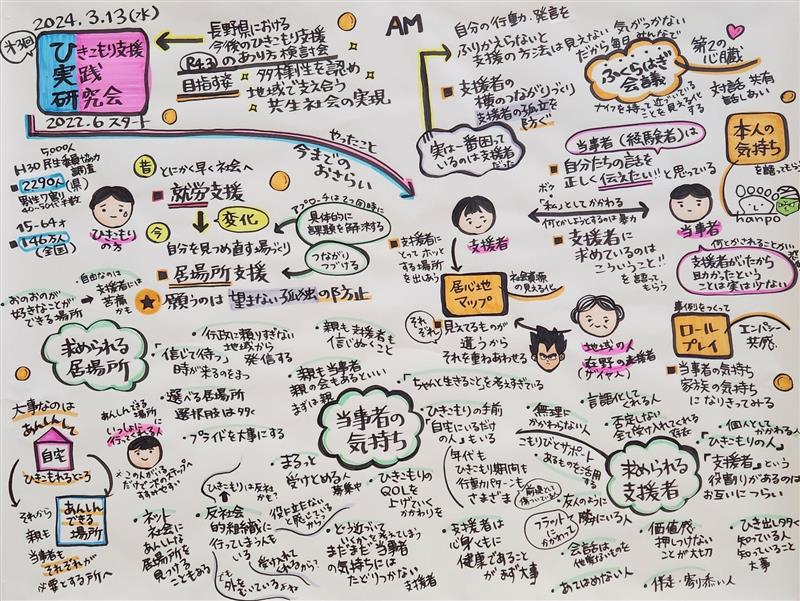 2024.3.13(水)
ひきこもり支援
実践
研究会
2022.6 スタート
長野県における
今後のひきこもり支援
のあり方検討会
(R4.3)
目指す姿
多様性を認め
地域で支え合う
共生社会の実現
AM
やったこと
今までの
おさらい
自分の行動・発言を
ふりかえらないと
支援の方法は見えない
支援者の
横のつながりづくり
支援者の孤立を
ふせぐ
実は一番困って
いるのは支援者だった
気がつかない
だから毎月みんなで
ふくらはぎ
会議
第2の
心臓
対話 共有
話しあい
5000人
H30 民生委員協力
調査
2290人(県)
15-64才
146万人
(全国)
ひきこもり
の方
昔
とにかく早く社会へ
就労支援
変化
今
自分を見つめ直す場づくり
居場所支援
願うのは 望まない孤独の防止
アプローチは2つ同時に
具体的に
課題を解決する
つながり
つづける
自由なのは
支援者には
苦痛かも
おのおのが
好きなことが
できる場所
当事者(経験者)は
自分たちの言話を
正しく伝えたい!!と思っている
ボク
「私」としてかかわる
何とかしようとするのは暴力
本人の
気持ち
を語ってもらう
hanpo
支援者
当事者
支援者に
とってホッと
する場所
を出しあう
居心地
マップ
社会資源
の見える化
支援者に
求めているのは
こういうこと!!
を語って
もらう
何とかされることが
支援者がったから
助かったという
ことは実は少ない
それぞれ
見えてるものが
違うから
それを重ねあわせる
地域の人
在野の支援者
(サイヤ人)
事例をつくって
ロール
プレイ
エンパシー
共感
当事者の気持ち
家族の気持ち
になりきってみる
求められる
居場所
・行政に頼りすぎない
地域から
発信する
・信じて待つ
時が来るのをまつ
・選べる居場所
選択肢は多く
・プライドを大事にする
・親も支援者も
信じぬくこと
・親も当事者
親の会もあるといい
まずは親
当事者の
気持ち
・「ちゃんと生きること」を考えすぎている
・「ひきこもりの手前
自宅にいるだけ
の人」もいる
年代も
ひきこもり期間も
行動パターンも
さまざま
・無理に
かかわらない
こもりびとサポート
あるものを活用
する
・言語化して
くれる人
・否定しない
全て受け入れてくれる
存在
求められる
支援者
・個人として
かかわる人
「ひきこもりの人」
「支援者」という
役割りがあるのは
お互いにつらい
大事なのは
あんしんして
自宅
ひきこもれるところ
それから
親も
当事者も
あんしん
できる場所
それぞれが
必要とする所へ
あんしんできる
場所に
いっしょに
行ってくれる人
・ネット
社会に
あんしんな
居場所を
見つける
こともある
ひきこもりは反社
かも?
・反社会
的組織に
行ってしまう人も
いる
役に立たないと
感じているから?
・まるっと
受けとめる人
募集中
・ひきこもりの
QOLを
上げていく
かかわりを
・どう近づいて
いくかを考えてしまう
まだまだ当事者
の気持ちには
たどりつかない
支援者
・支援者は
心身ともに
健康であること
がまず大事
フラットに
かかわる
・友人のように
勝にいる人
・会話は
他愛ないものを
・あてはめない人
・価値感
押しつけない
ことが大切
・伴走・寄り添い人
・ひき出し多く
知っている人
知っていること
大事